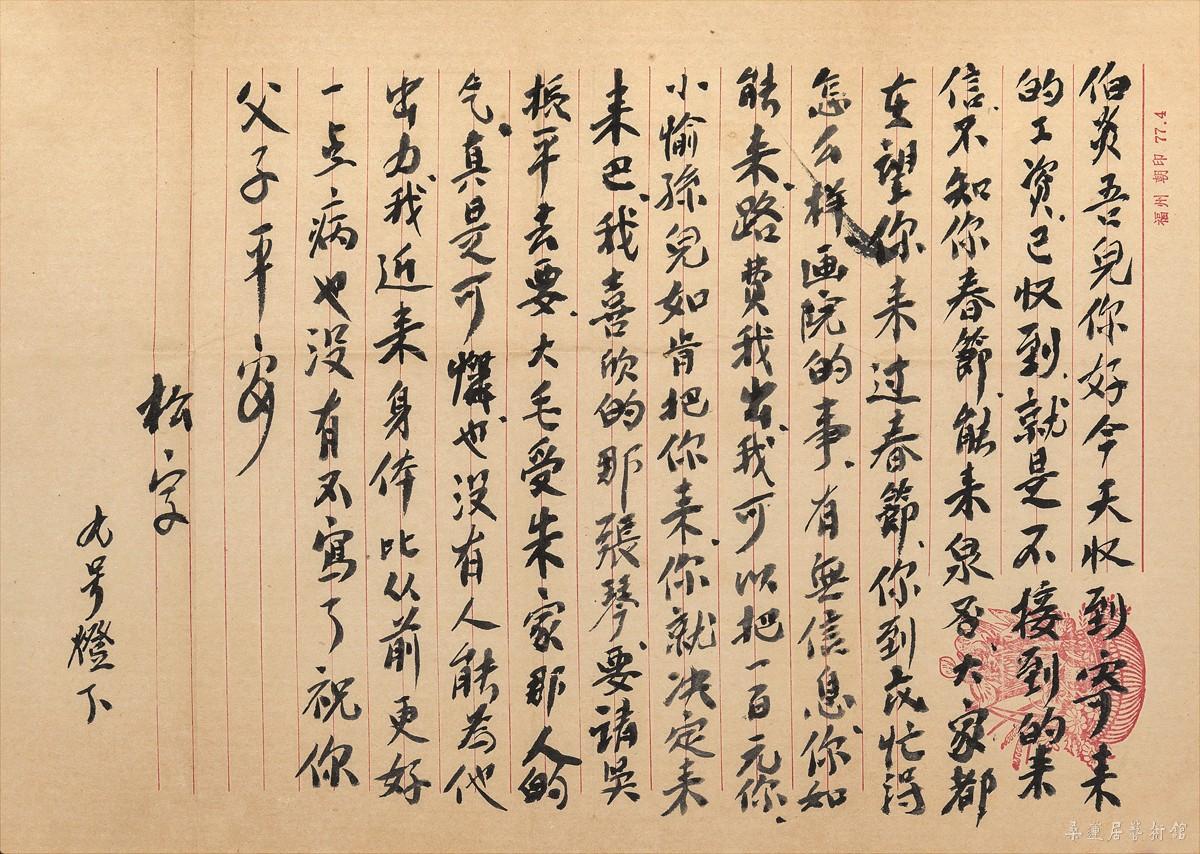 伯炎吾兒你好今天收到寄来
的工資已收到就是不接到的来
信不知你春節能来泉否大家都
在望你来过春節你到底忙得
怎么样画院的事有無信息你如
能来路费我出我可以把一百元你
小愉孫兒如肯把你来你就决定来
来巴我喜欣的那張琴要請吴
振平去要大毛受朱家那人的
气真是可憐也没有人能為他
出力我近来身体比从前更好
一点病也没有不寫了祝你
父子平安
松字
九号燈下
福州 朝印 77.4
桑蓮居藝術館